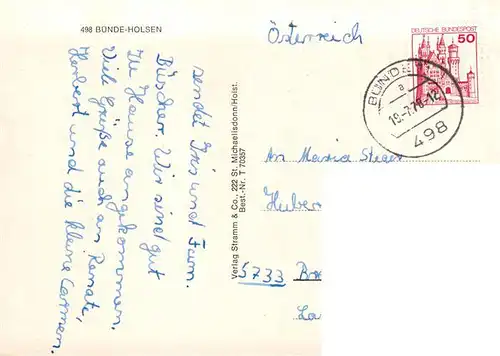 498 BÜNDE-HOLSEN
Österreich
DEUTSCHE BUNDESPOST
50
BÜNDE
a
19.-7.78-12
498
sendet Iris und Fam.
Büscher. Wir sind gut
zu Hause angekommen.
Viele Grüße auch an Renate,
Herbert und die kleine Carmen.
Verlag Stramm & Co., 222 St. Michaelisdonn/Holst.
Best.-Nr. T 70357
An Maria Steger
Huber
5733
La